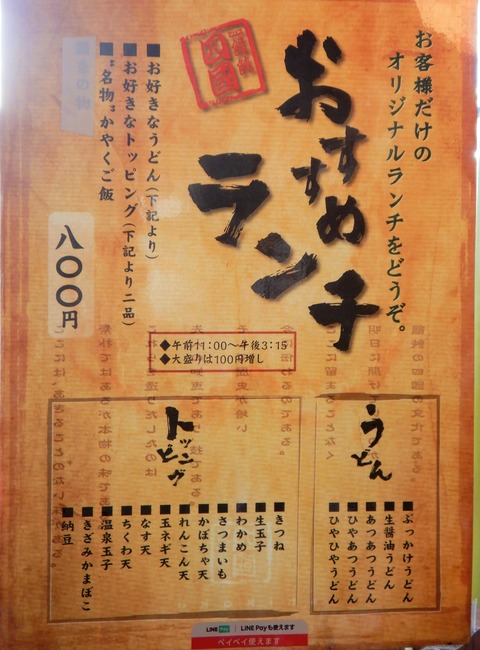 お客様だけの
オリジナルランチをどうぞ。
おすすめ
ランチ
四国
■お好きなうどん(下記より)
■お好きなトッピング(下記より二品)
■〝名物〟かやくご飯
八〇〇円
◆午前11:00〜午後3:15
◆大盛りは100円増し
うどん
■ぶっかけうどん
■生醤油うどん
■あつあつうどん
■ひやあつうどん
■ひやひやうどん
トッピング
■きつね
■生玉子
■わかめ
■さつまいも
■かぼちゃ天
■れんこん天
■玉ネギ天
■なす天
■ちくわ天
■温泉玉子
■きざみかまぼこ
■納豆
LINE Pay LINE Payも使えます
ペイペイ使えます